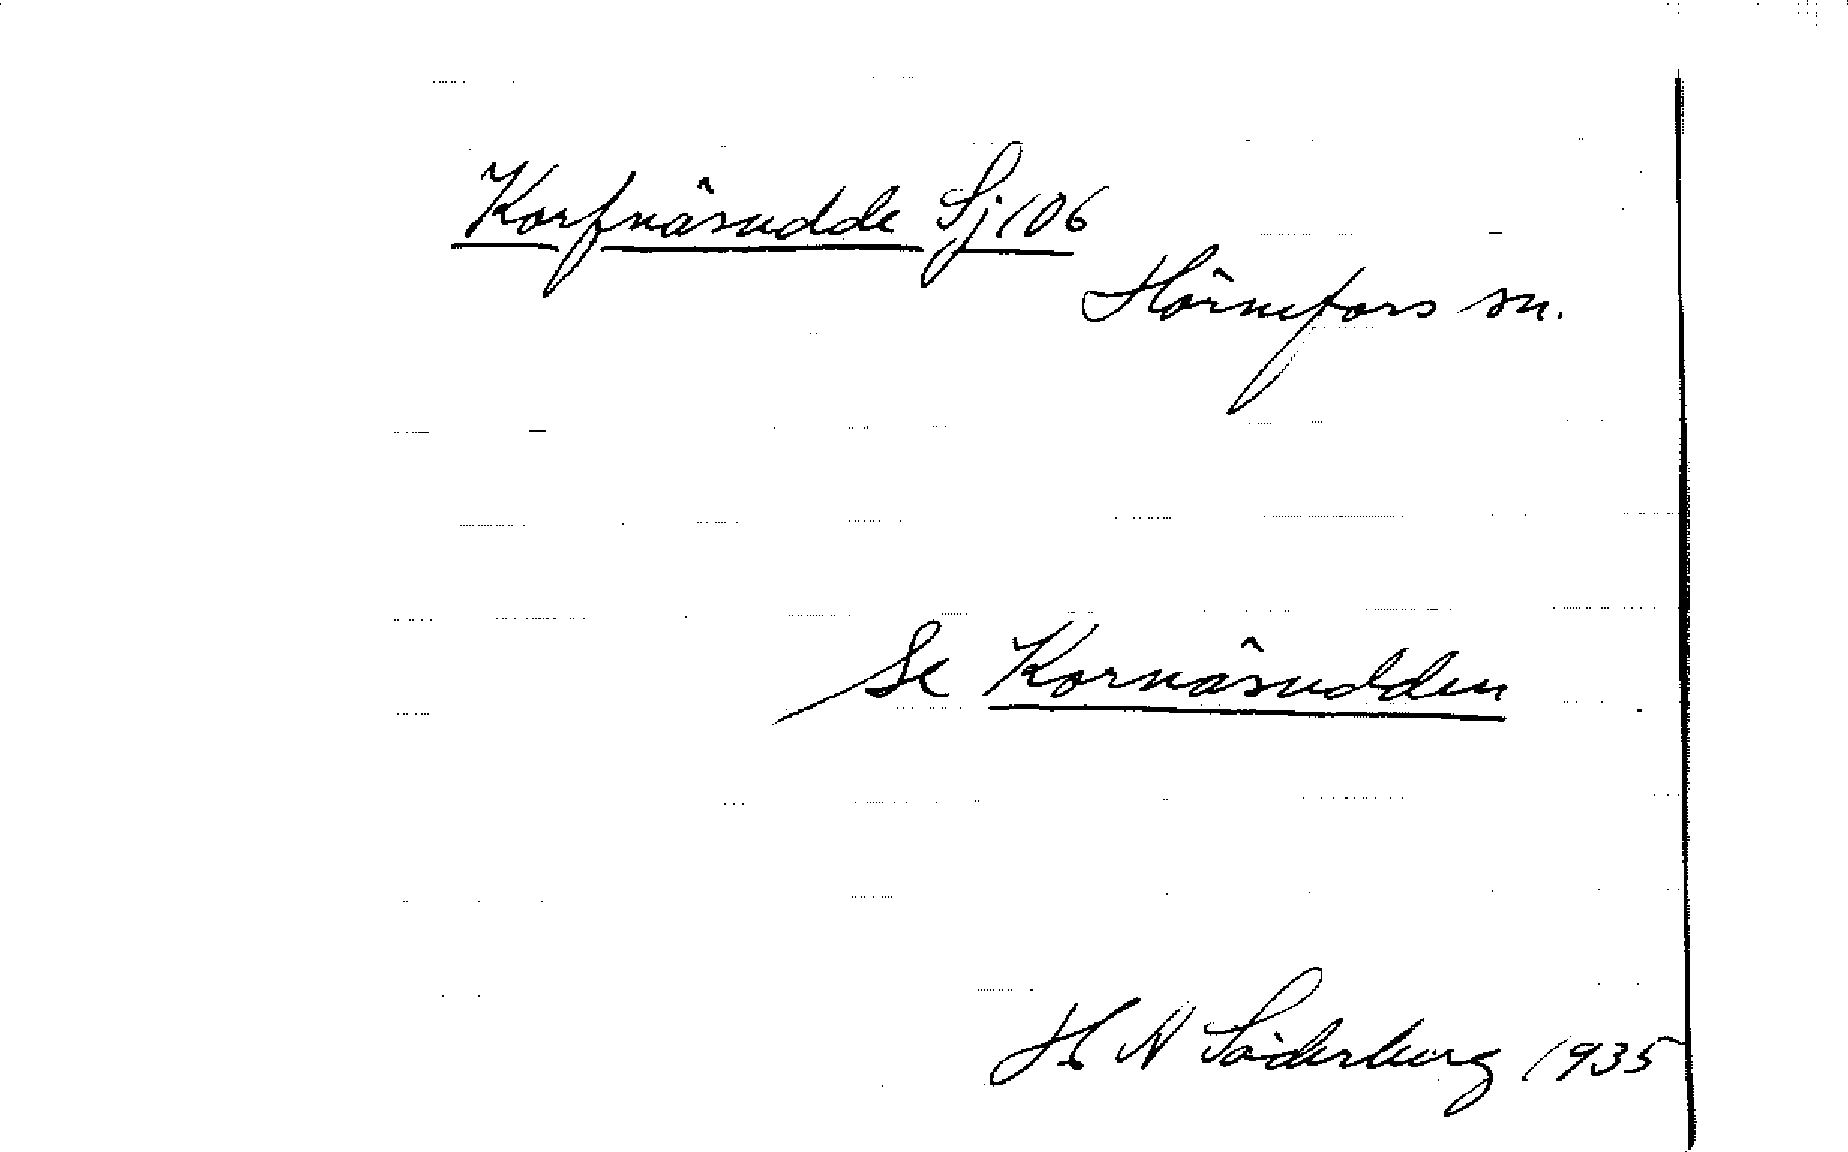 Korfnäsudde Sj 106
Hörnefors sn.
Se Kornäsudden
H N Söderberg 1935